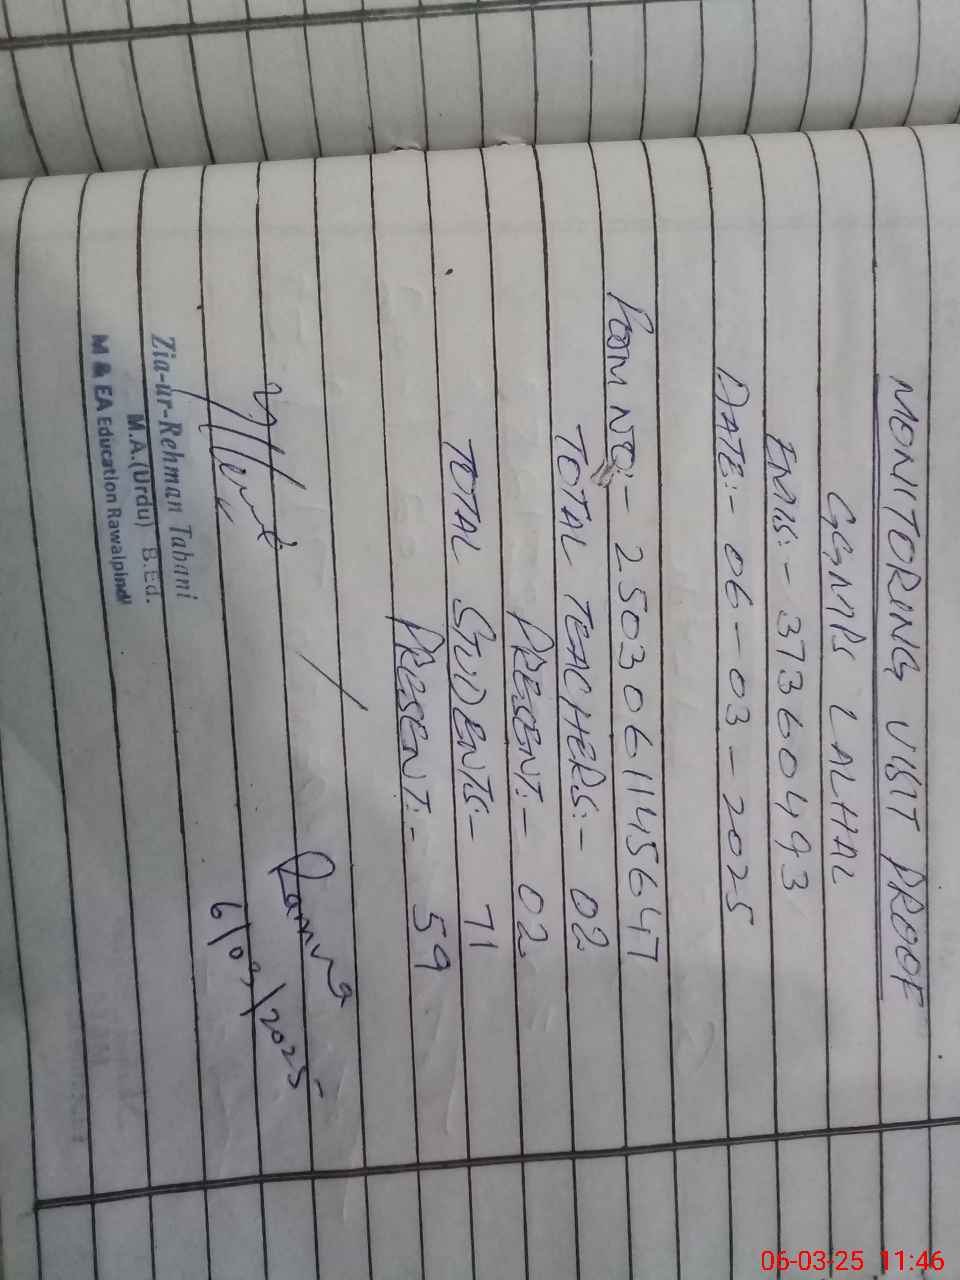 MONITORING VISIT PROOF
GGMPS LALHAL
EMIS:- 37360493
DATE:- 06-03-2025
ROOM NO:- 250306114564７
TOTAL TEACHERS:- 02
PRESENT:- 02
TOTAL STUDENTS:- 71
PRESENT:- 59
6/03/2025
Zia-ur-Rehman Tabani
M.A.(Urdu) B.Ed.
M & EA Education Rawalpindi
06-03-25 11:46